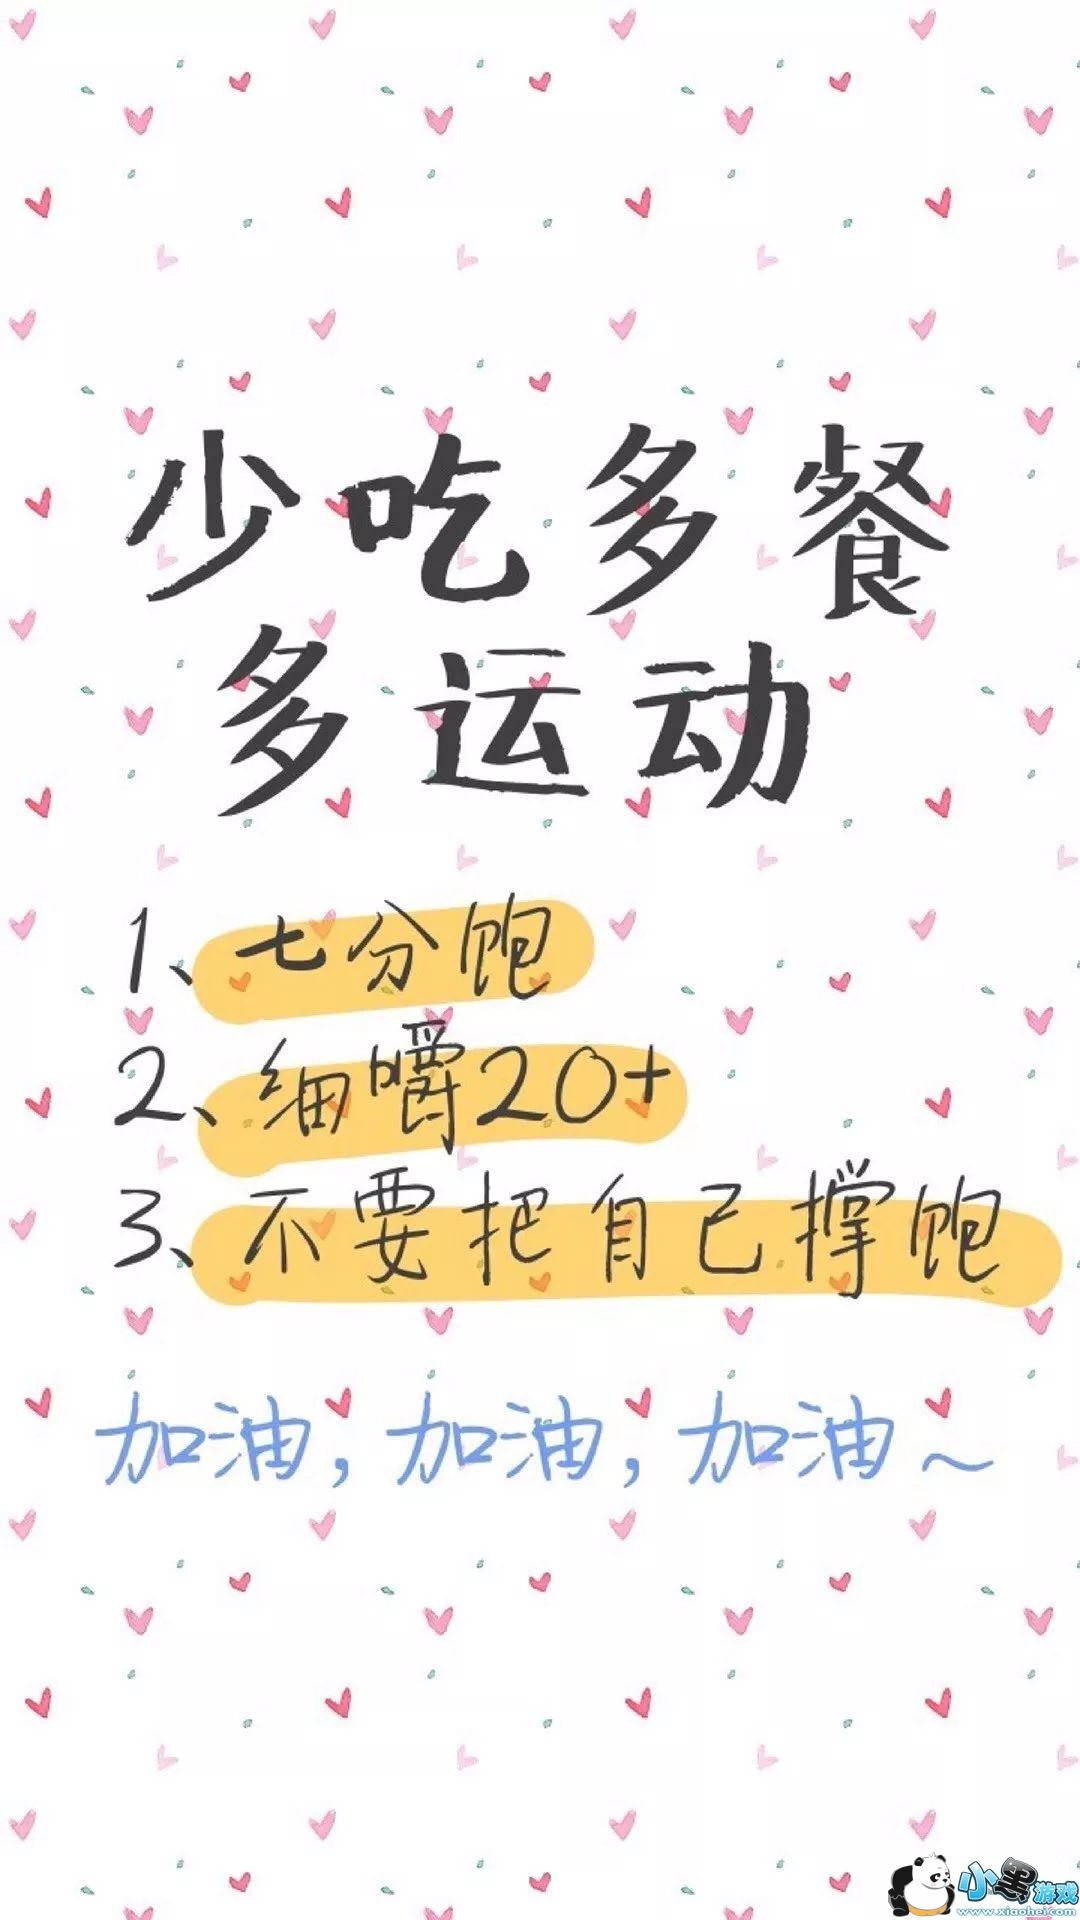 少吃多餐
多运动
1、七分饱
2、细嚼20+
3、不要把自己撑饱
加油，加油，加油～
小黑游戏
www.xiaohei.com